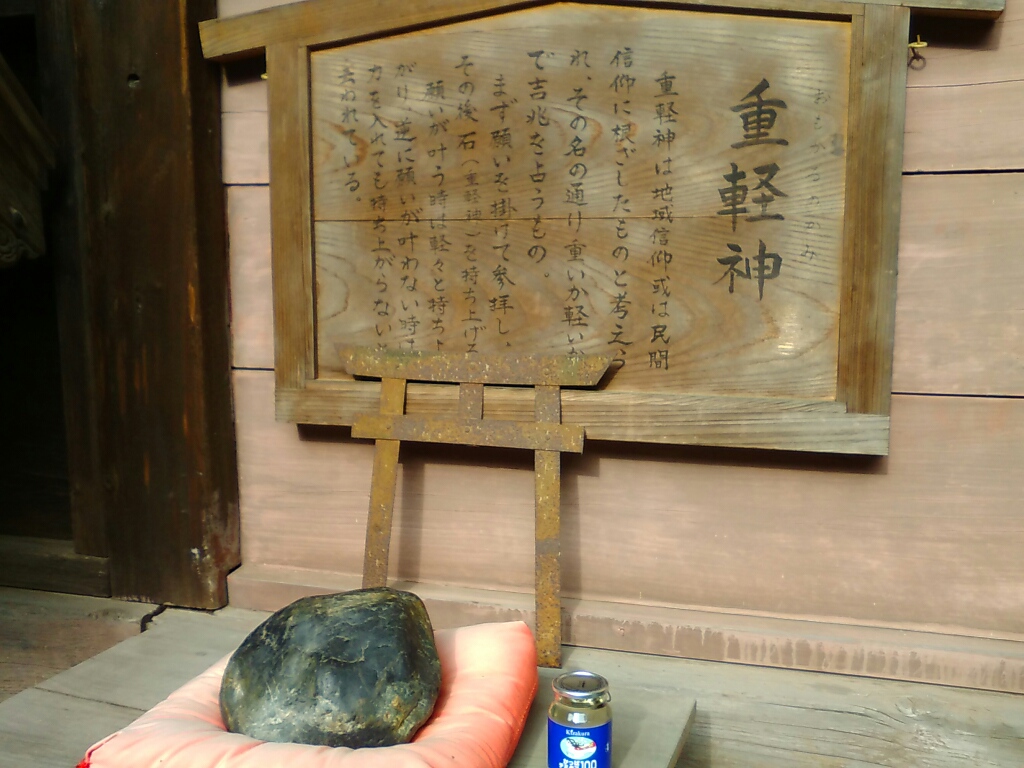 おもかるのかみ
重軽神
重軽神は地域信仰或は民間
信仰に根ざしたものと考えら
れ、その名の通り重いか軽いか
で吉兆を占うもの。
まず願いを掛けて参拝し、
その後、石(重軽神)を持ち上げる
願いが叶う時は軽々と持ち上
がり、逆に願いが叶わない時は
力を入れても持ち上がらないと
云われている。
Kizakura